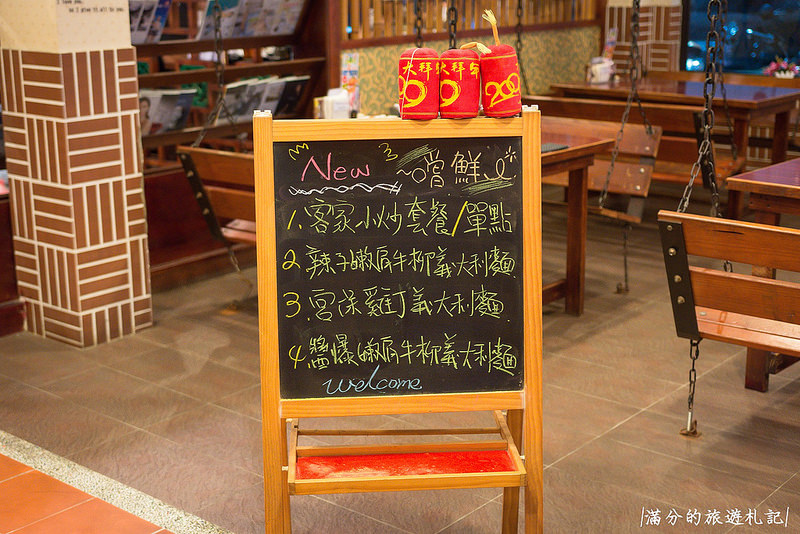 New 嚐鮮
1. 客家小炒套餐/單點
2 辣子嫩肩牛柳義大利麵
3 宮保雞丁義大利麵
4 醬爆嫩肩牛柳義大利麵
welcome
大拜
大拜
200
|滿分的旅遊札記|